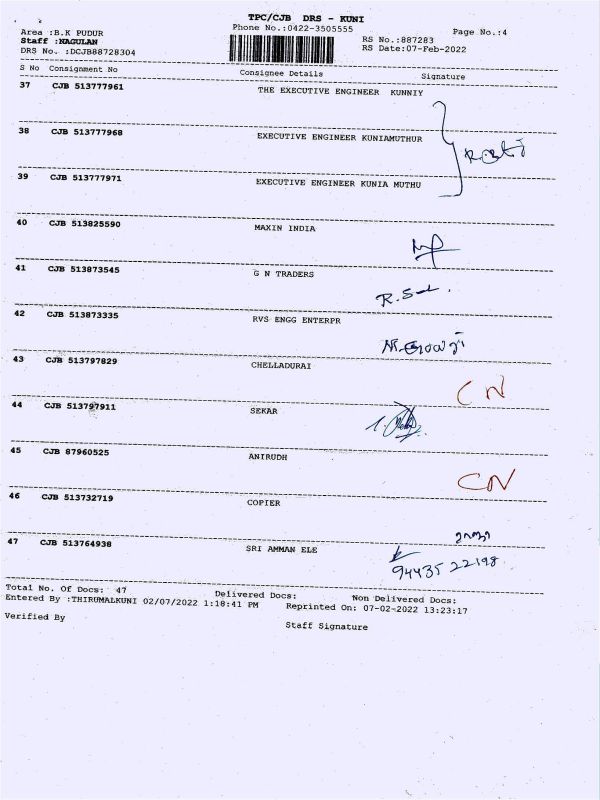 TPC/CJB DRS - KUNI
Phone No.:0422-3505555
Page No.:4
Area :B.K PUDUR
RS No.:887283
Staff :NAGULAN
RS Date:07-Feb-2022
DRS No. :DCJB88728304
S No Consignment No Consignee Details Signature
37 CJB 513777961 THE EXECUTIVE ENGINEER KUNNIY
38 CJB 513777968 EXECUTIVE ENGINEER KUNIAMUTHUR
39 CJB 513777971 EXECUTIVE ENGINEER KUNIA MUTHU
40 CJB 513825590 MAXIN INDIA
41 CJB 513873545 G N TRADERS
42 CJB 513873335 RVS ENGG ENTERPR
43 CJB 513797829 CHELLADURAI
CN
44 CJB 513797911 SEKAR
45 CJB 87960525 ANIRUDH
CN
46 CJB 513732719 COPIER
47 CJB 513764938 SRI AMMAN ELE
94435 22198
Total No. Of Docs: 47 Delivered Docs: Non Delivered Docs:
Entered By :THIRUMALKUNI 02/07/2022 1:18:41 PM Reprinted On: 07-02-2022 13:23:17
Verified By Staff Signature